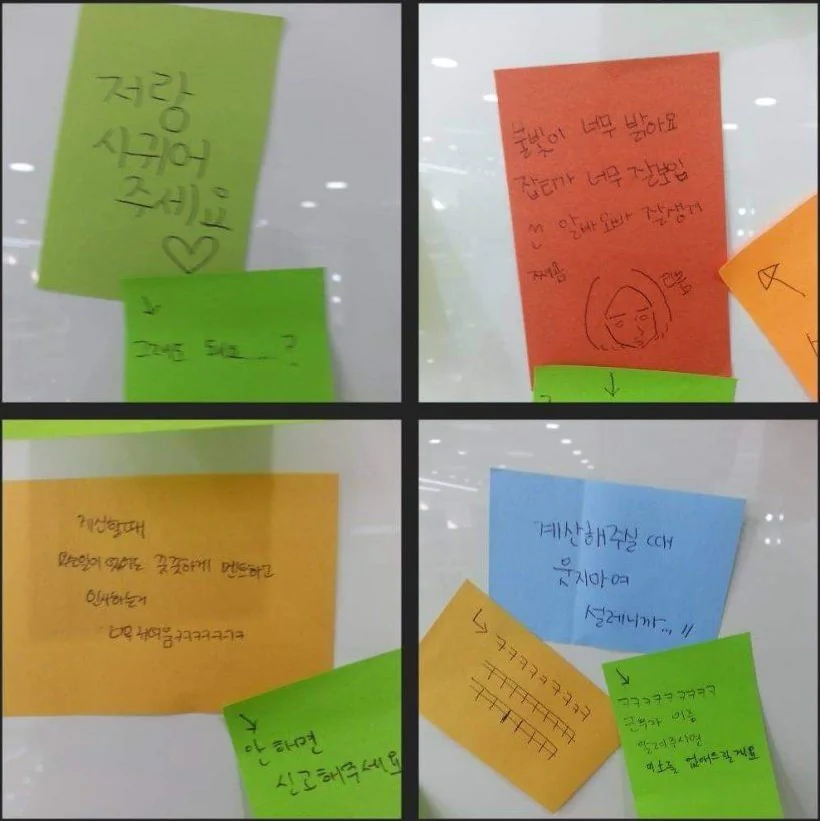 저랑
사귀어
주세요
♡
↓
그래도 돼요....?
불빛이 너무 밝아요
잡티가 너무 잘보임
알바오빠 잘생겨
↓
계산할때
꿋꿋하게 멘트하고
인사하는거
너무 귀여움ㅋㅋㅋㅋㅋㅋ
↘
안 해면
신고해주세요
계산해주실 때
웃지마여
설레니까... //
↘
ㅋㅋㅋㅋㅋㅋㅋㅋㅋ
ㅋㅋㅋㅋㅋㅋㅋㅋ
ㅋㅋㅋㅋㅋㅋㅋ
↘
ㅋㅋㅋㅋㅋㅋㅋㅋㅋ
근무자 이름
알려주시면
미소를 없애드릴게요